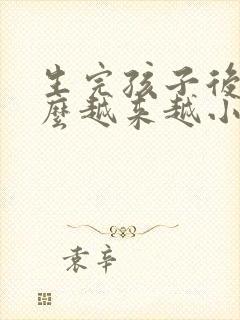 生完孩子後
麼越来越小
袁辛